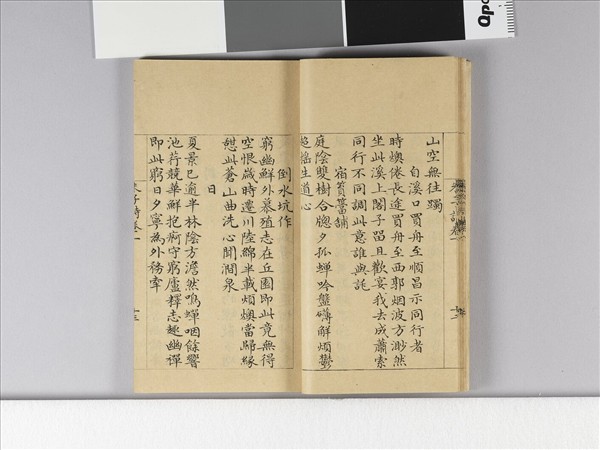 山空無往躅
自溪口買舟至順昌示同行者
時燠倦長途買舟至西郭烟波方渺然
坐此溪上閣子留且歡宴我去成蕭索
同行不同調此意誰與託
宿篔簹舖
庭陰雙樹合牕夕孤蟬吟盤礴解煩鬱
超摇生道心
倒水坑作
窮幽鮮外慕殖志在丘園即此竟無得
空恨歲時遷川陸綿半載煩燠當歸緣
憇此蒼山曲洗心聞澗泉
日
夏景已逾半林陰方澹然鳴蟬咽餘響
池荷競華鮮抱痾守窮廬釋志趣幽禪
即此窮日夕寧為外務牽
朱子詩卷一